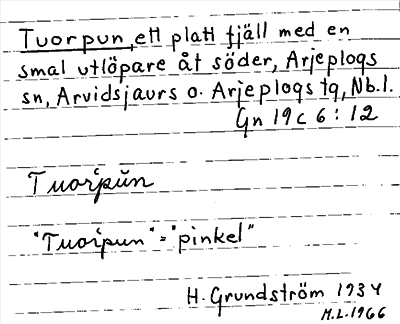 Tuorpun, ett platt fjäll med en
smal utlöpare åt söder, Arjeplogs
sn, Arvidsjaurs o. Arjeplogs tg, Nb.l.
Gn 19c 6:12
Tuorpŭn
"Tuorpun" = "pinkel"
H. Grundström 1934
M.L. 1966